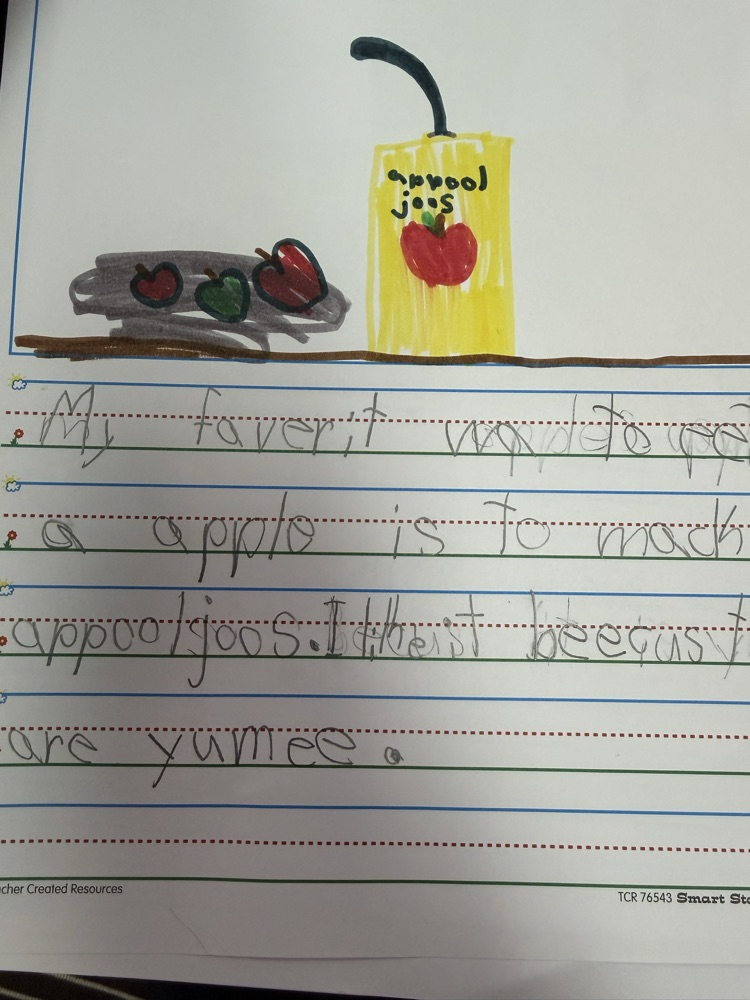 appool
joos
My faverit to
a apple is to mack
appooljoos. I beecus
are yumee.
cher Created Resources
TCR 76543 Smart Sto